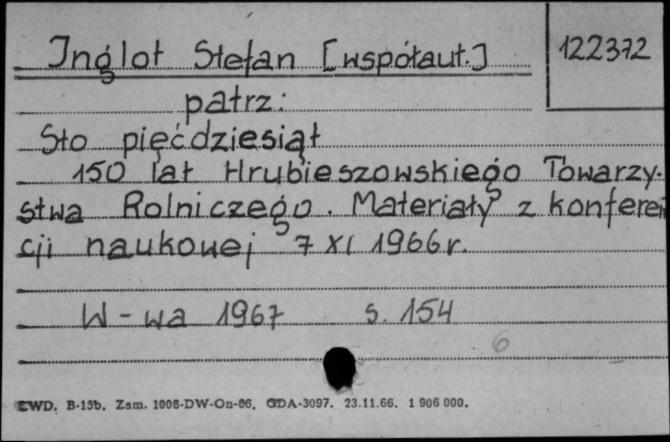 Inglot Stefan [współaut.] 122372
patrz:
Sto pięćdziesiąt
150 lat Hrubieszowskiego Towarzy-
stwa Rolniczego. Materiały z konferen
cji naukowej 7 XI 1966 r.
W-wa 1967 s. 154
6
CWD. B-15b. Zam. 1008-DW-On-66. GDA-3097. 23.11.66. 1 906 000.